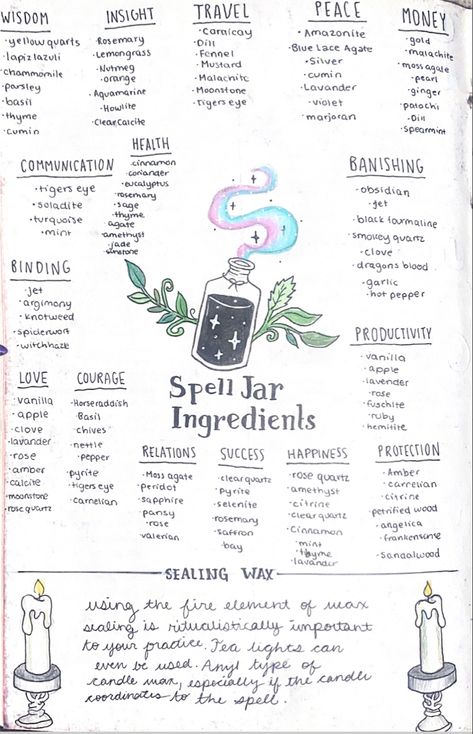 WISDOM
• yellow quarts
• lapiz lazuli
• chammomile
• parsley
• basil
• thyme
• cumin
INSIGHT
• Rosemary
• Lemongrass
• Nutmeg
• orange
• Aquamarine
• Howlite
• Clear Calcite
TRAVEL
• Caraicay
• Dill
• Fennel
• Mustard
• Malachite
• Moonstone
• tigers eye
PEACE
• Amazonite
• Blue Lace Agate
• Silver
• cumin
• Lavander
• violet
• marjoran
MONEY
• gold
• malachite
• moss agate
• pearl
• ginger
• patochi
• Dill
• spearmint
COMMUNICATION
• tigers eye
• soladite
• turquoise
• mint
HEALTH
• cinnamon
• coriander
• eucalyptus
• rosemary
• sage
• thyme
agate
• amethyst
• jade
• sunstone
BANISHING
• obsidian
• jet
• black tourmaline
• smokey quartz
• clove
• dragons blood
• garlic
• hot pepper
BINDING
• jet
• argimony
• knotweed
• spiderwort
• witchhaze
PRODUCTIVITY
• vanilla
• apple
• lavender
• rose
• fuschite
• ruby
• hemitite
Spell Jar
Ingredients
LOVE
• vanilla
• apple
• clove
• lavander
• rose
• amber
• calcite
• moonstone
• rose quartz
COURAGE
• Horseraddish
• Basil
• chives
• nettle
• pepper
• pyrite
• tigers eye
• carnelian
RELATIONS
• Moss agate
• peridot
• sapphire
• pansy
• rose
• valerian
SUCCESS
• clear quartz
• Pyrite
• selenite
• rosemary
• saffron
• bay
HAPPINESS
• rose quartz
• amethyst
• citrine
• clear quartz
• Cinnamon
• mint
• thyme
• lavander
PROTECTION
• Amber
• carnelian
• citrine
• petrified wood
• angelica
• frankensense
• sandalwood
SEALING WAX
using the fire element of wax
sealing is ritualistically important
to your practice. Tea lights can
even be used. Anyt type of
candle wax, especially if the candle
coordinates to the spell.